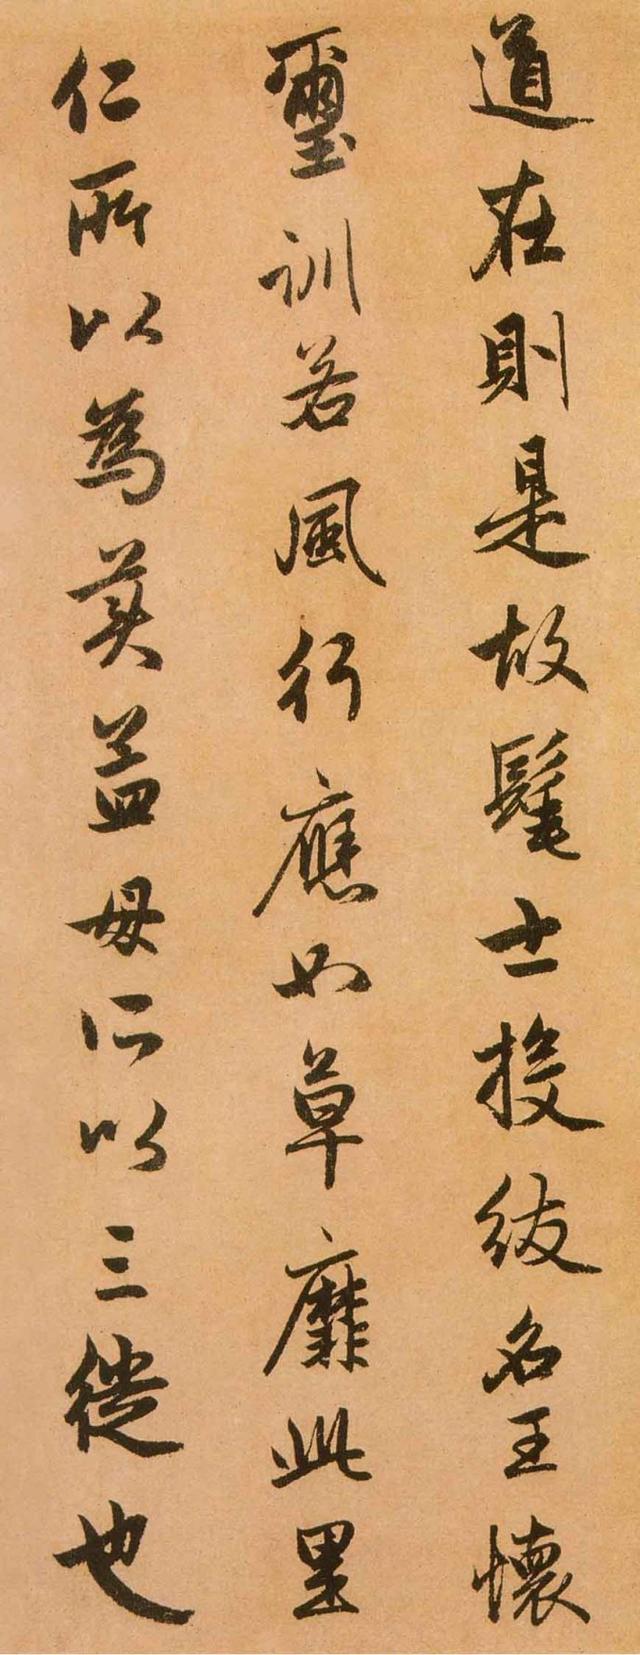 道在則是故髦士投紱名王懷
璽訓若風行應如草靡此里
仁所以為美益母所以三徙也